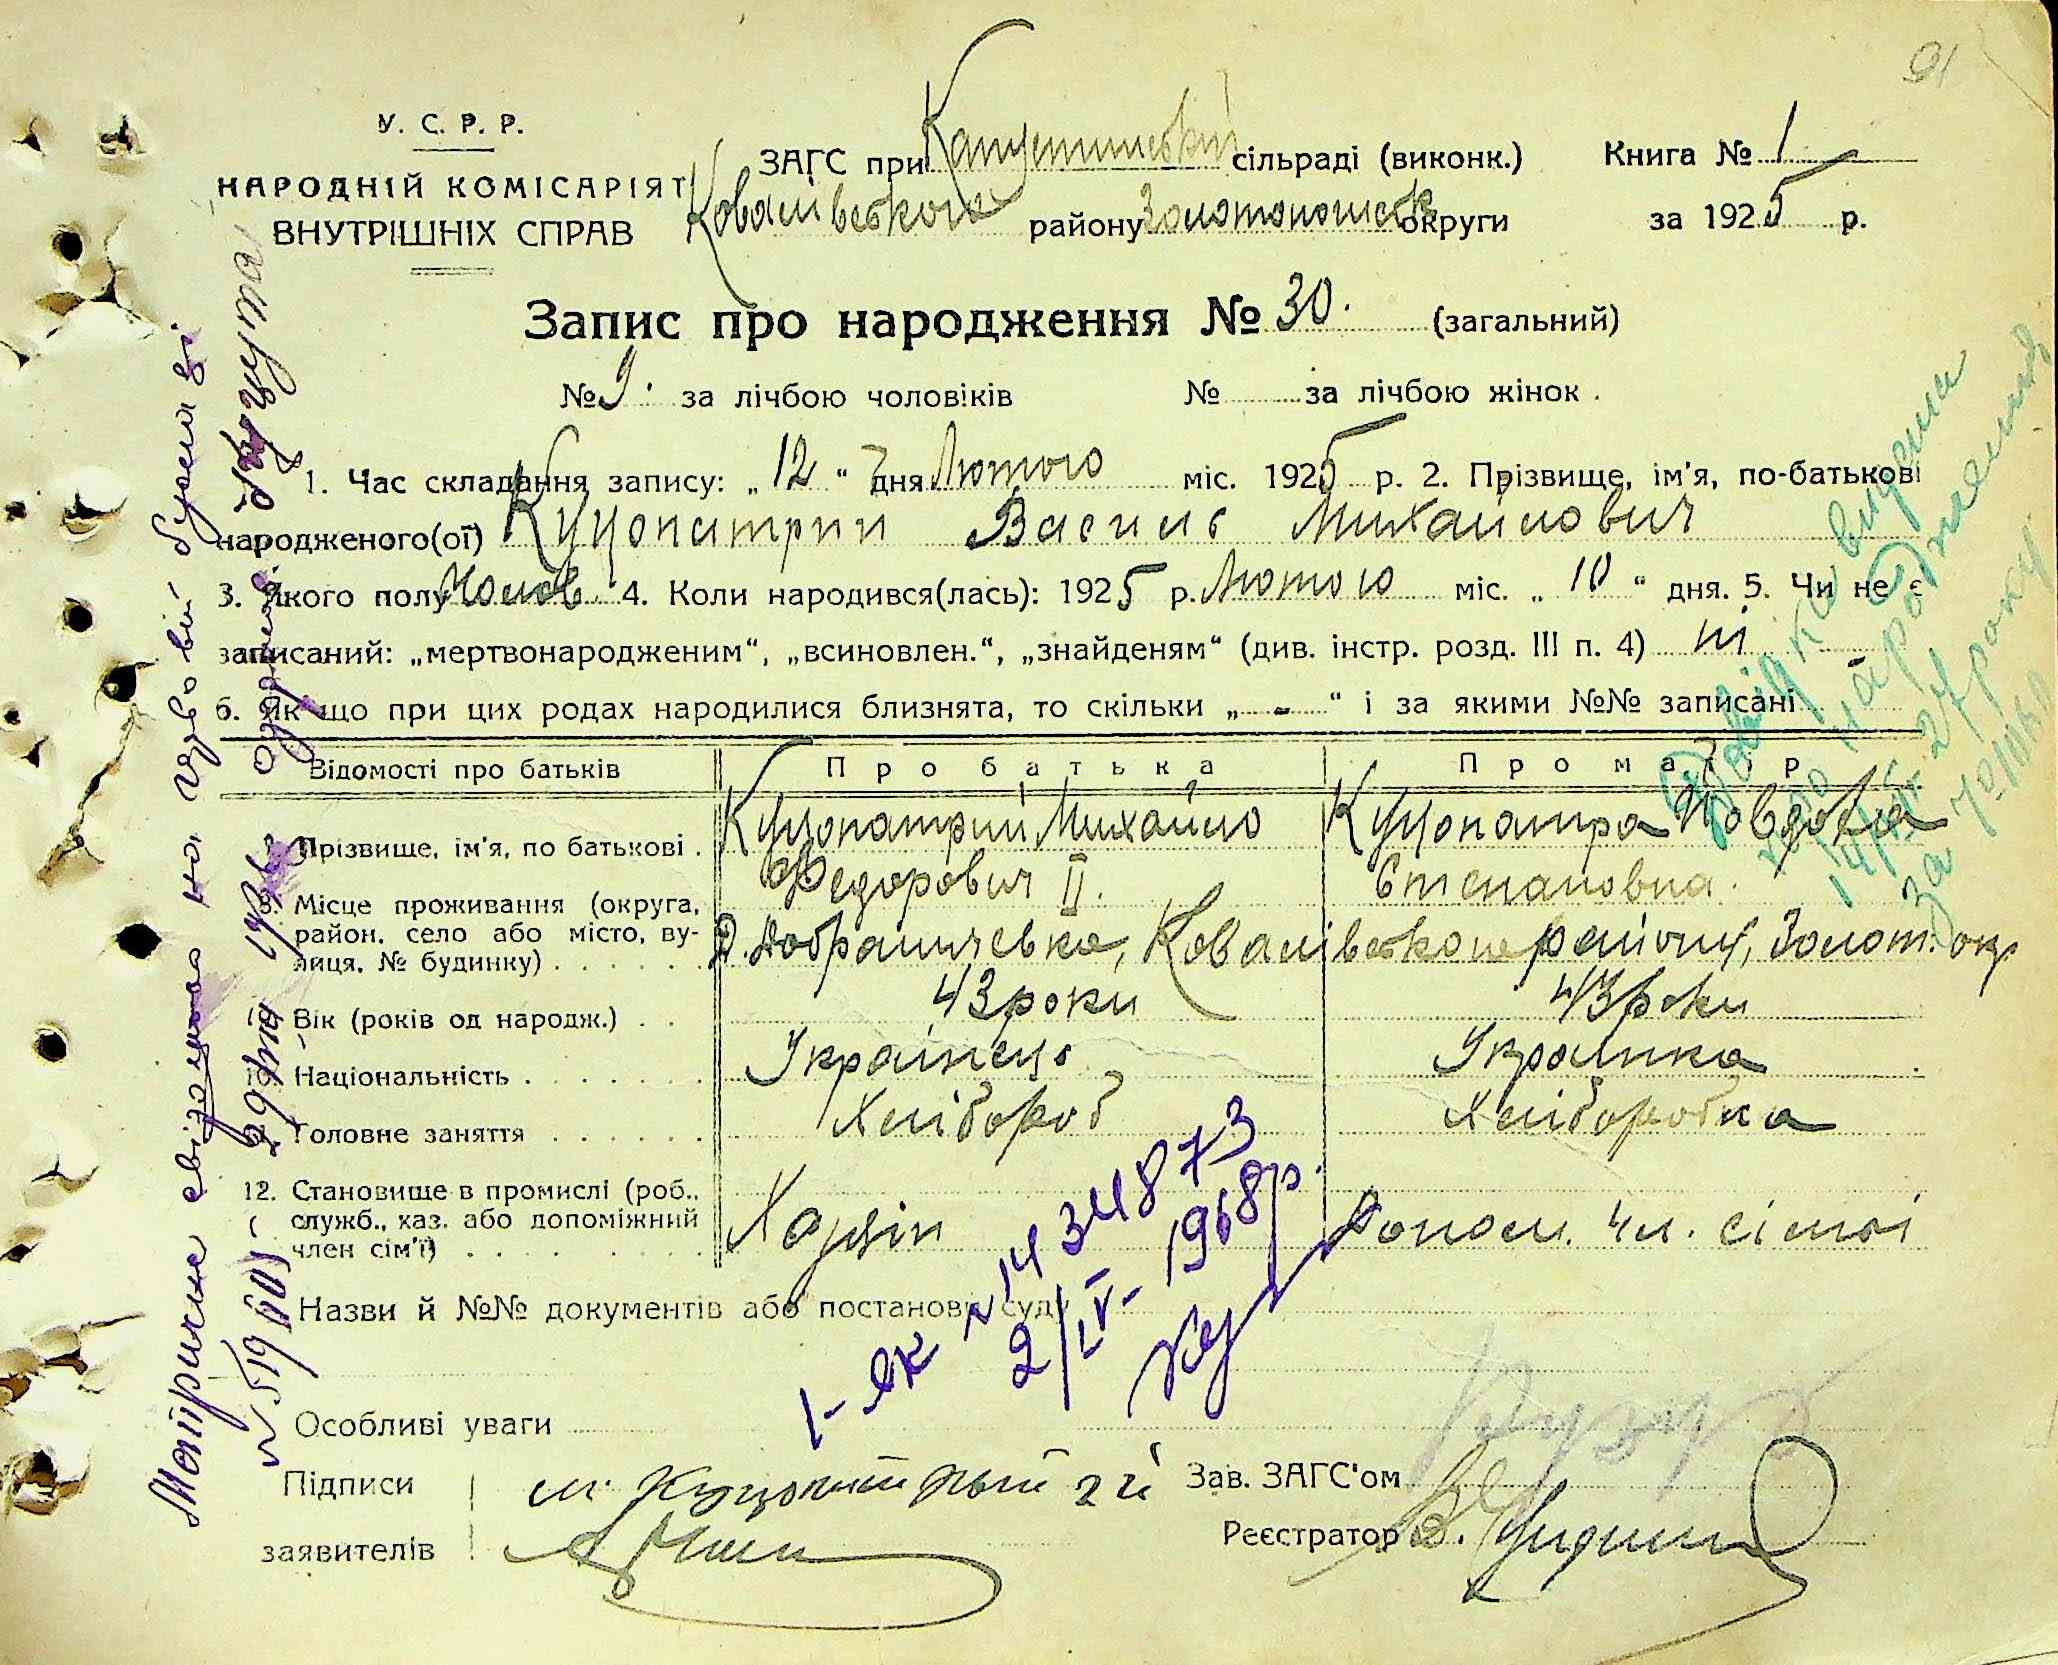 91
У. С. Р. Р.
НАРОДНІЙ КОМІСАРІЯТ
ВНУТРІШНІХ СПРАВ
ЗАГС при Капустинській сільраді (виконк.)
Ковалівського району Золотоношськ округи
Книга № 1
за 1925 р.
Запис про народження № 30. (загальний)
№ 9. за лічбою чоловіків № за лічбою жінок.
1. Час складання запису: „12“ дня Лютого міс. 1925 р. 2. Прізвище, ім'я, по-батькові
народженого(ої) Куцопатрий Василь Михайлович
3. Якого полу Чолов 4. Коли народився(лась): 1925 р. Лютого міс. „10“ дня. 5. Чи не є
записаний: „мертвонародженим“, „всиновлен.“, „знайденям“ (див. інстр. розд. III п. 4) ні
6. Як що при цих родах народилися близнята, то скільки „ - “ і за якими №№ записані
Відомості про батьків Про батька Про матір
Прізвище, ім'я, по батькові. Куцопатрий Михайло Федорович II. Куцопатра Явдоха Степановна.
8. Місце проживання (округа,
район, село або місто, вулиця, № будинку) Д. Добраничевка, Ковалівського району, Золот. окр
Вік (років од народж.) 43 роки 43 роки
Національність Українець Українка
Головне заняття Хлібороб Хліборобка
12. Становище в промислі (роб.,
служб., хаз. або допоміжний
член сім'ї) Хазяїн Допом. чл. сімьї
Назви й №№ документів або постанови суду
Особливі уваги
Підписи
заявителів
м. Куцопатрый 2й
Зав. ЗАГС'ом
Реєстратор
1-як № 14 344873
2/IV- 1968р.
Довідка видана
про народження
14/ 27 року
за №
Метричне свідоцтво на